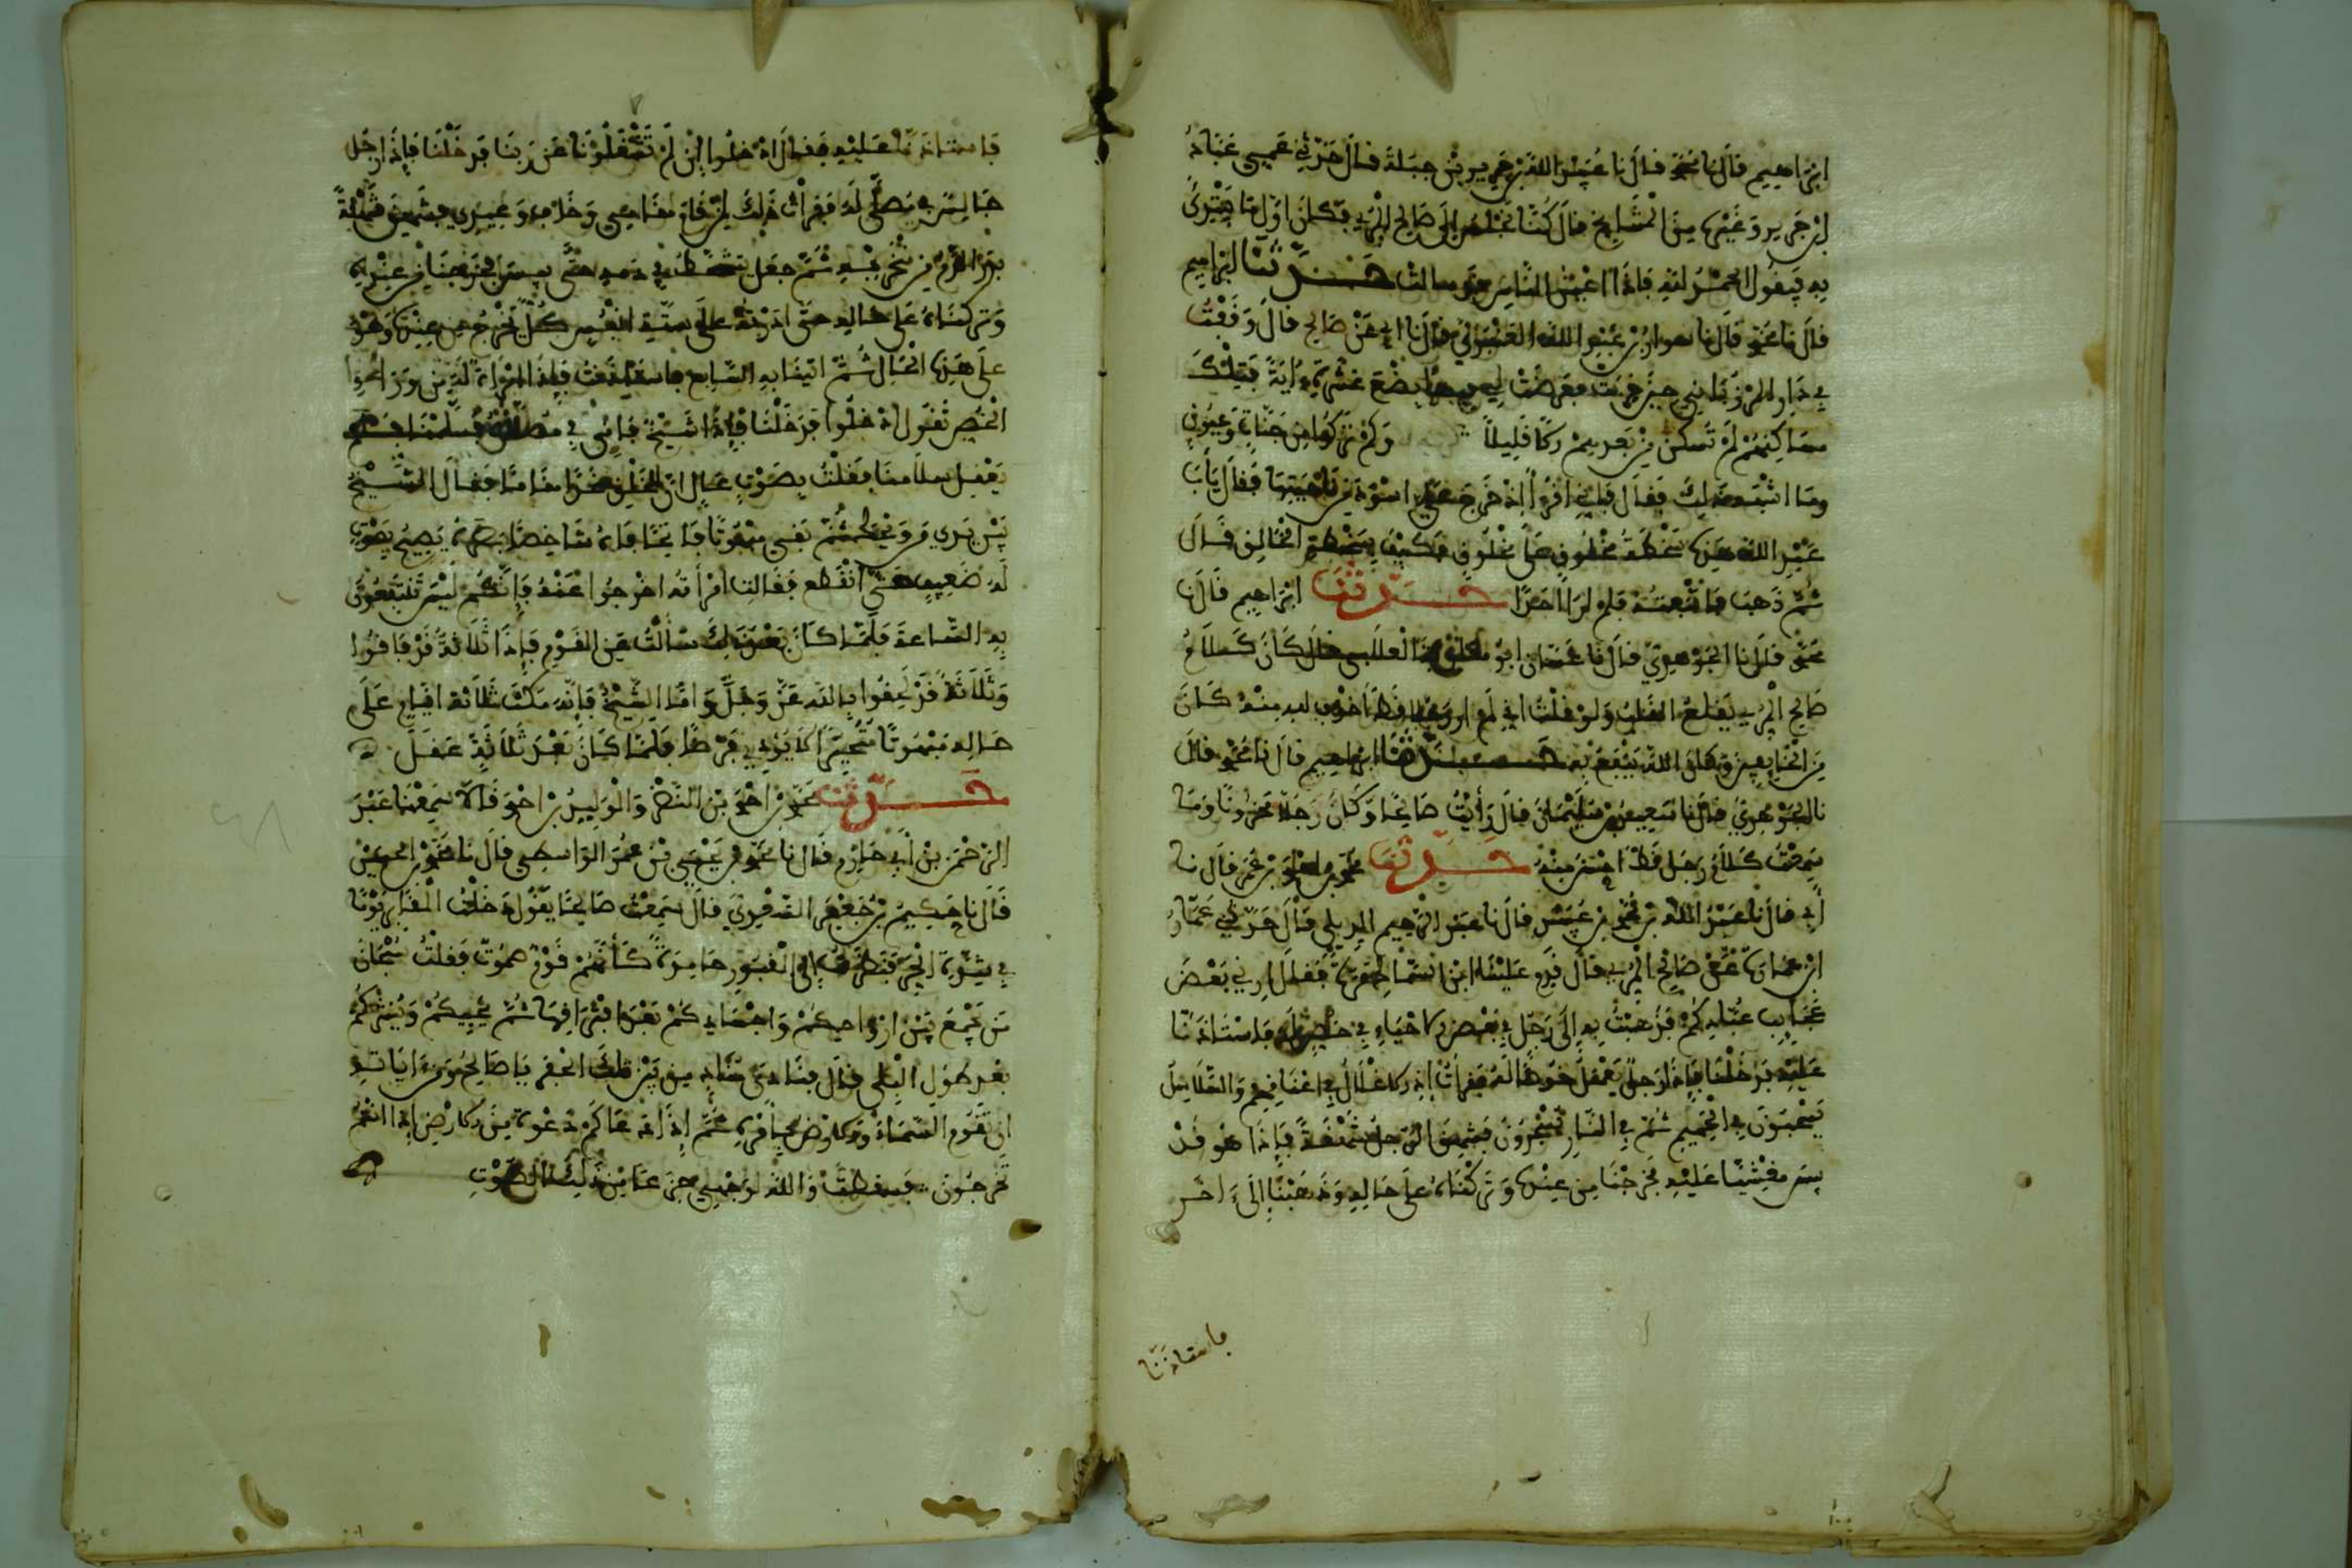 ابراهيم قال نا محمد قال نا عبيد الله بن جرير بن جبلة قال حدثني عمي عباد
ابن جرير وغيره من المشايخ قال كنا نجلس الى صالح المري فكان اول ما يبتدئ
به يقول الحمد لله فاذا اعين الناس قد سالت حدثنا ابراهيم
قال نا محمد قال نا سوار بن عبد الله العنبري قال نا ابي عن صالح قال وقفت
في دار المرزباني حين خربت فعرضت لي بضع عشرة ءاية فتلك
مساكنهم لم تسكن من بعدهم الا قليلا وكم تركوا من جنات وعيون
وما اشبه ذلك فقال فاني اقرأ اذ خرج علي اسود من ناحيتها فقال يا با
عبد الله هذه سخطة مخلوق على مخلوق فكيف بسخطة الخالق قال
ثم ذهب فاتبعته فلم ار احدا حدثنا ابراهيم قال نا
محمد قال نا الجوهري قال نا غسان ابو قال كان كلام
صالح المري يقطع القلب ولو قلت اني لم ار
من الخايفين وكان الله ينفع به حدثنا ابراهيم قال نا محمد قال
نا الجوهري قال نا سعيد بن سليمان قال رأيت صالحا وكان رجلا محزونا وما
سمعت كلام رجل قط احسن منه حدثنا محمد بن احمد بن عمر قال نا
أبي قال نا عبد الله بن محمد بن عبيد قال نا عبد الرحيم قال حدثني عمار
ابن عثمان عن صالح المري قال قدم علينا ابن السماك مرة فقال ارني بعض
عجايب عبادكم فذهبت به إلى رجل في بعض الاحياء في خص له فاستاذنا
عليه فدخلنا فإذا رجل يعمل خوصا له فقرأت إذ الاغلال في اعناقهم والسلاسل
يسحبون في الحميم ثم في النار يسجرون فشهق الرجل شهقة فإذا هو قد
يبس مغشيا عليه فخرجنا من عنده وتركناه على حاله وذهبنا إلى ءاخر
فاستاذنا
فاستاذنا عليه فقال ادخلوا إن لم تشغلونا عن ربنا فدخلنا فإذا رجل
جالس في مصلى له فقرأت ذلك لمن خاف مقامي وخاف وعيدي فشهق شهقة
بدر الدم من منخريه ثم جعل يتشحط في دمه حتى يبس فخرجنا من عنده
وتركناه على حاله حتى ادرته على ستة انفس كل نخرج من عنده وهو
على هذه الحال ثم اتيت به السابع فاستاذنت فإذا امرأة له من وراء
الخص تقول ادخلوا فدخلنا فإذا شيخ فان في مصلاه فسلمنا فلم
يعقل سلامنا فقلت بصوت عال ان للخلق غدا مقاما فقال الشيخ
بين يدي من ويحك ثم بقي مبهوتا فاتحا فاه شاخصا بصره يصيح بصوت
له ضعيف حتى انقطع فقالت امرأته اخرجوا عنه فإنكم ليس تنتفعون
به الساعة فلما كان بعد ذلك سألت عن القوم فإذا ثلاثة قد افاقوا
وثلاثة قد لحقوا بالله عز وجل وأما الشيخ فإنه مكث ثلاثة ايام على
حاله مبهوتا متحيرا لا يؤدي فرضا فلما كان بعد ثلاثة عقل
حدثنا محمد بن احمد بن النضر والوليد بن احمد قالا سمعنا عبد
الرحمن بن أبي حازم قال نا محمد بن يحيى بن عمر الواسطي قال نا محمد بن الحسين
قال نا حكيم بن جعفر السعدي قال سمعت صالحا يقول دخلت المقابر يوما
في شدة الحر فنظرت إلى القبور خامدة كأنهم قوم صموت فقلت سبحان
من يجمع بين ارواحكم واجسادكم بعد افتراقها ثم يحييكم وينشركم
بعد طول البلى قال فنادى مناد من بين تلك الحفر يا صالح ومن ءاياته
ان تقوم السماء والارض بامره ثم إذا دعاكم دعوة من الارض إذا انتم
تخرجون فسقطت والله لوجهي جزعا من ذلك الصوت